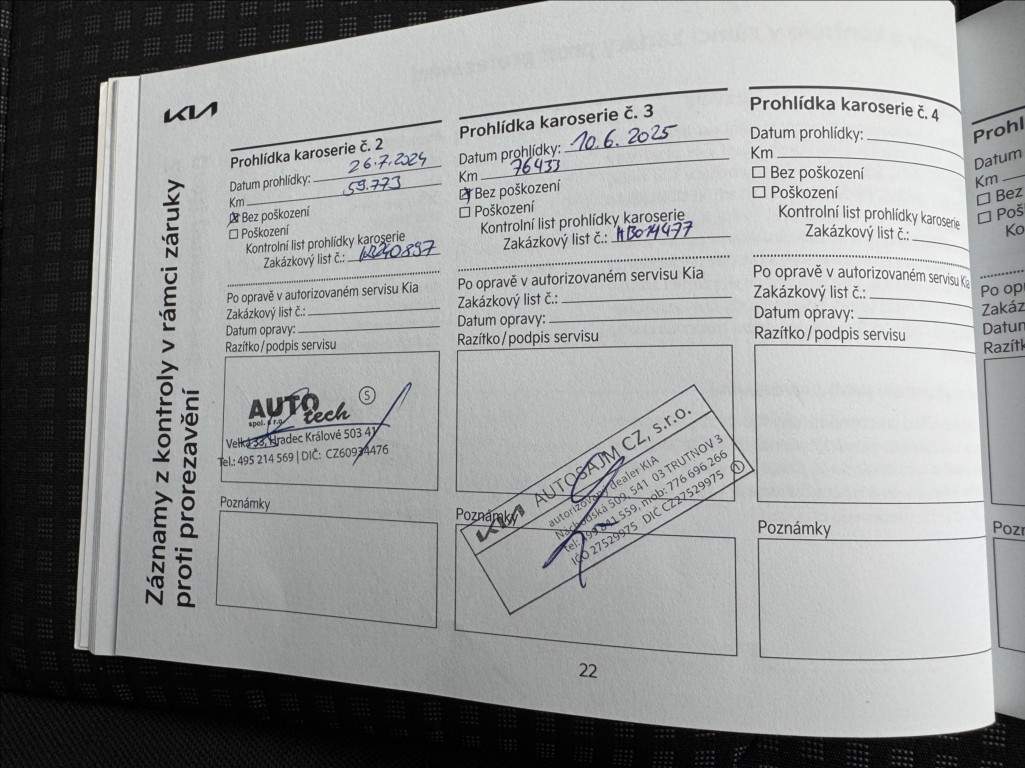 KIA
Záznamy z kontroly v rámci záruky
proti prorezavění
Prohlídka karoserie č. 2
Datum prohlídky: 26.7.2024
Km 59.773
Bez poškození
Poškození
Kontrolní list prohlídky karoserie
Zakázkový list č.:
Po opravě v autorizovaném servisu Kia
Zakázkový list č.:
Datum opravy:
Razítko/podpis servisu
AUTO tech S
spol. s r.o.
Velká 33, Hradec Králové 503 41
Tel.: 495 214 569 | DIČ: CZ60934476
Poznámky
Prohlídka karoserie č. 3
Datum prohlídky: 10.6.2025
Km 76433
Bez poškození
Poškození
Kontrolní list prohlídky karoserie
Zakázkový list č.:
Po opravě v autorizovaném servisu Kia
Zakázkový list č.:
Datum opravy:
Razítko/podpis servisu
KIA AUTOSAJM CZ, s.r.o.
autorizovaný dealer KIA
Náchodská 509, 541 03 TRUTNOV 3
tel: 499 841 559, mob: 776 696 266
IČO 27529975 DIČ CZ27529975 1
Poznámky
Prohlídka karoserie č. 4
Datum prohlídky:
Km
Bez poškození
Poškození
Kontrolní list prohlídky karoserie
Zakázkový list č.:
Po opravě v autorizovaném servisu Kia
Zakázkový list č.:
Datum opravy:
Razítko/podpis servisu
Poznámky
22
Prohl
Datum
Km
Bez
Poš
Ko
Po op
Zakáz
Datum
Razítk
Pozn